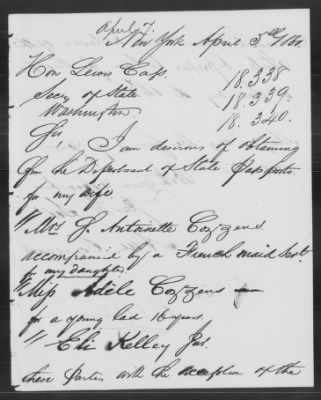 april 7.
New York April 5th 1860.
Hon Lewis Cass. 18.338
Secy of State 18.339.
Washington. 18.340.
Sir, I am desirous of obtaining
from the Department of State Passports
for my wife
"Mrs J. Antoinette Cozzens.
accompanied by a French maid Servt.
for my daughter
"Miss Adele Cozzens
for a young lad 16 years
" Eli Kelley Jur.
these parties with the exception of the